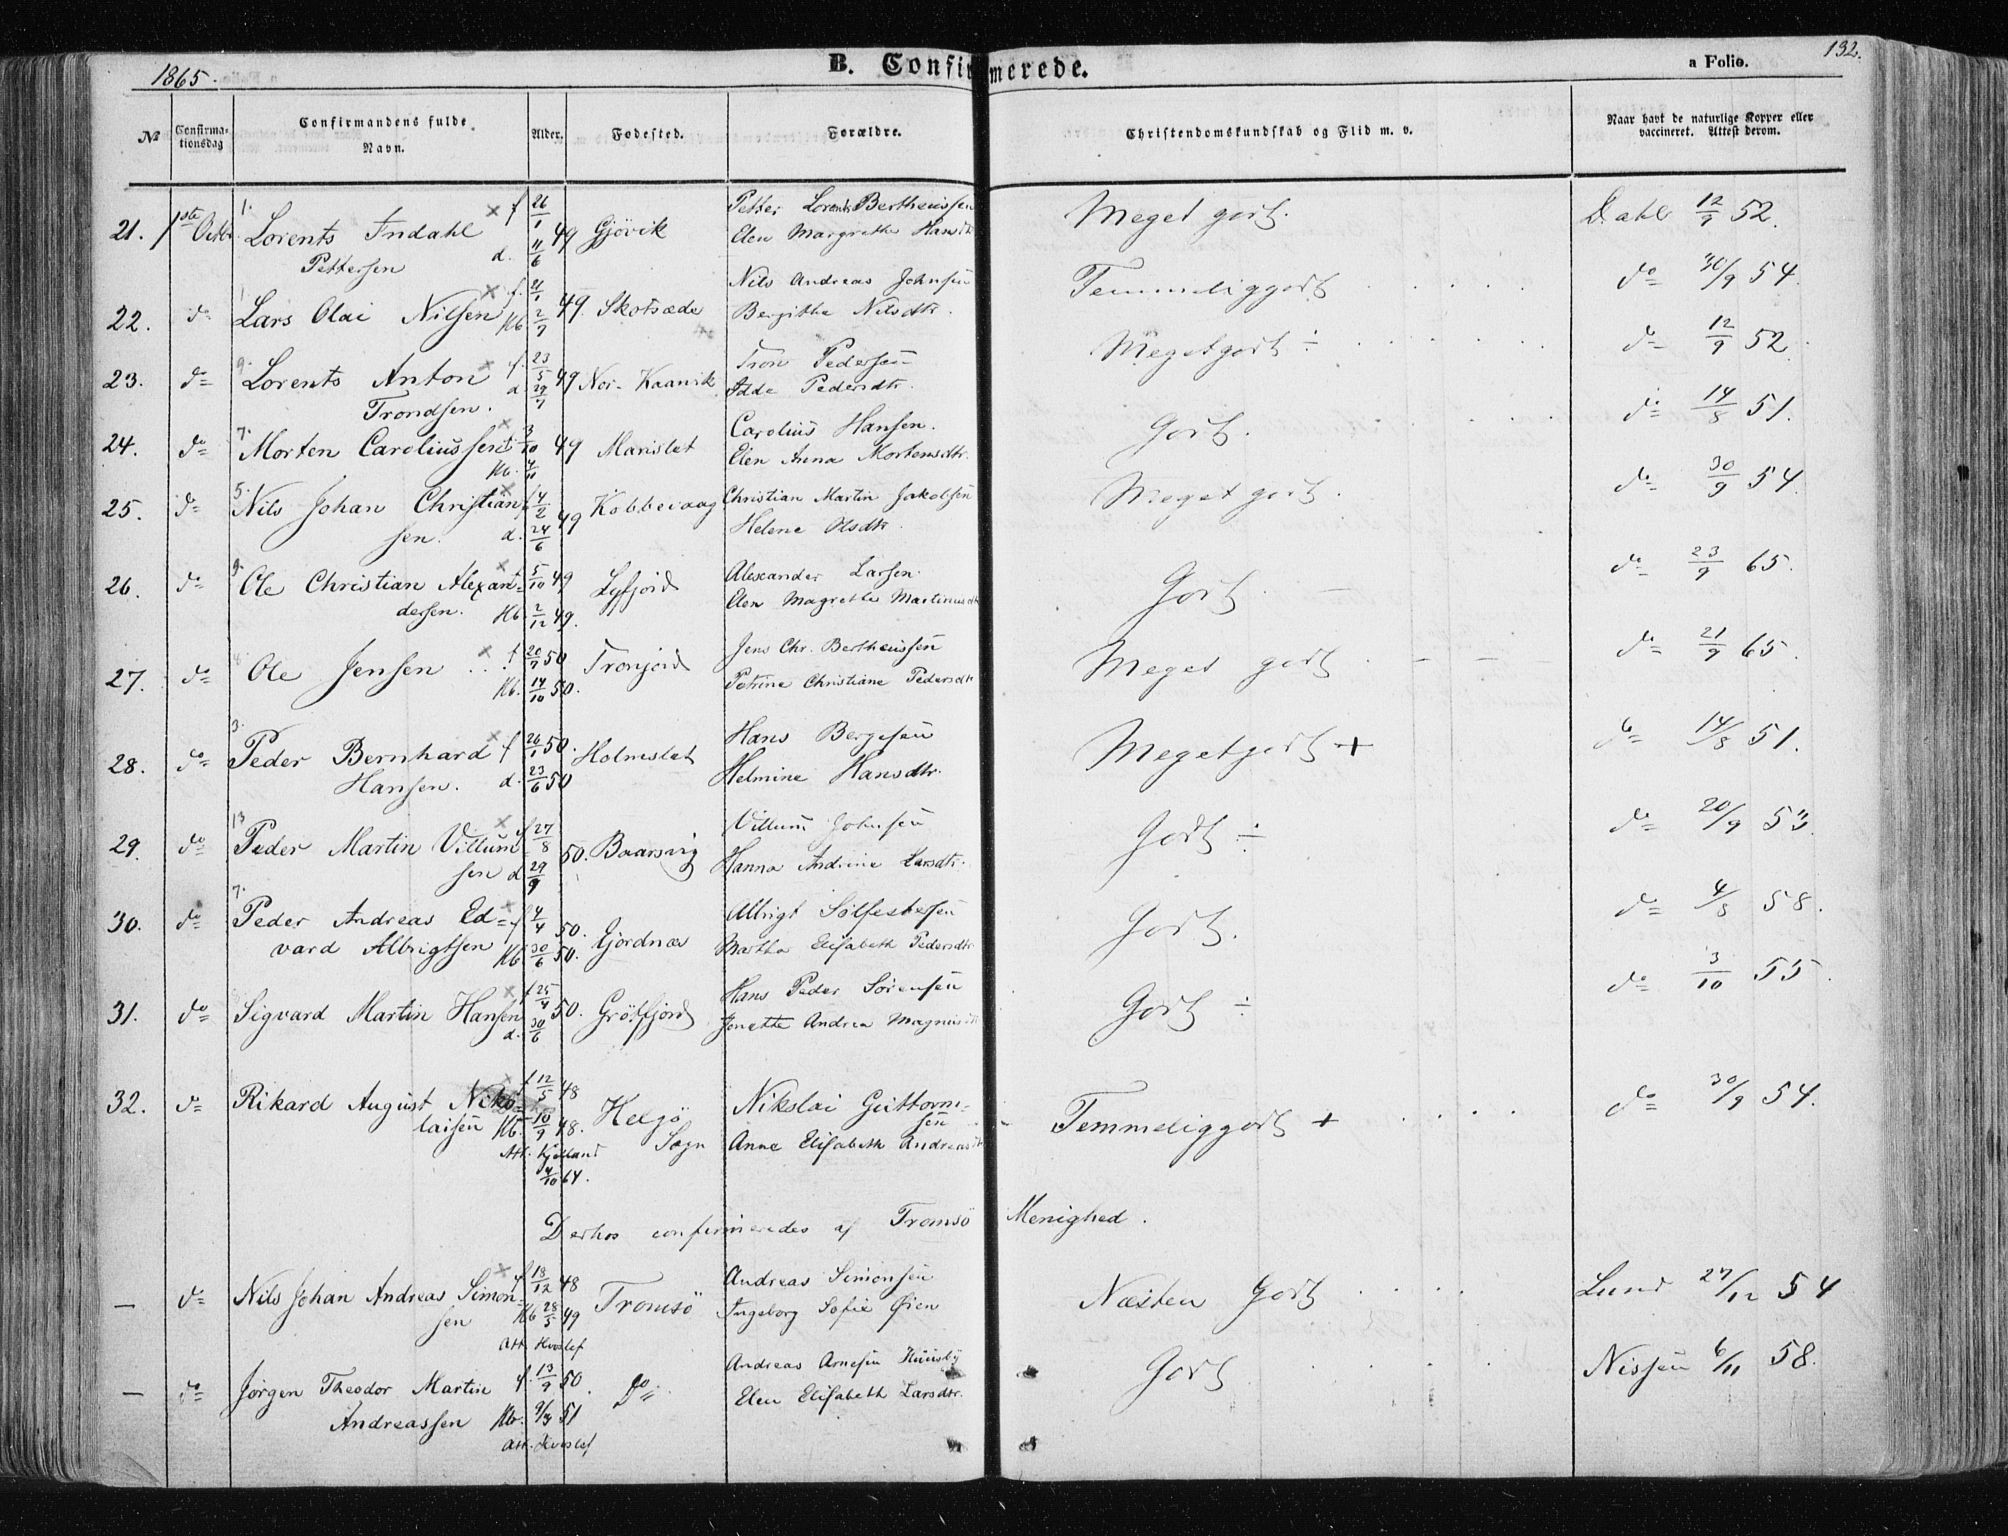 1865.
B. Confirmerede.
a Folio.
132.
No
Confirma-
tionsdag
Confirmandens fulde
Navn.
Alder.
Fødested.
Forældre.
Christendomskundskab og Flid m. v.
Naar havt de naturlige Kopper eller
vaccineret. Attest derom.
21. 1ste Octbr. 1. Lorents Indahl × f 26/1 49 Gjövik Petter Lorents Bertheussen Meget godt. Dahl 12/9 52.
Pettersen d. 11/6 Elen Margrethe Hansdtr
22. do 1 Lars Olai Nilsen × f. 21/1 49. Skotsæde Nils Andreas Johnsen Temmeliggodt do 30/9 54.
Kb. 2/7 Bergitha Nilsdtr.
23. do 9. Lorents Anton × f. 23/5 49 Nor-Kaarvik Tron Pedersen Megetgodt ÷ do 12/9 52.
Trondsen. d 29/7 Adde Pedersdtr.
24. do 7. Morten Caroliussen × f. 3/10 49 Marislet Carolius Hansen. Godt. do 14/8 51.
Kb. 4/11 Elen Anna Mortensdtr.
25. do 5. Nils Johan Christian × f 4/2 49 Kobbevaag Christian Martin Jakobsen Meget godt. do 30/9 54.
sen. d. 24/6 Helene Olsdtr.
26. do 9. Ole Christian Alexan= × f 5/10 49 Lyfjord Alexander Larsen. Godt. do 23/9 65.
dersen. Kb. 2/12 49. Elen Magrethe Martinusdtr
27. do Ole Jensen × f 20/7 50 Tronjord Jens Chr. Bertheussen Meget godt. do 21/9 65.
Kb. 14/10 50. Petrine Christiane Pedersdtr
28. do 3. Peder Bernhard × f 26/1 50. Holmeslet Hans Bergesen Megetgodt + do 14/8 51.
Hansen. d. 23/6 50 Helmine Hansdtr.
29. do 13 Peder Martin Villum × f 27/8 50. Baarsvig Villum Johnsen Godt ÷ do 20/9 53.
sen d 29/9 Hanna Andrine Larsdtr.
30. do 7. Peder Andreas Ed= × f 4/4 50. Gjordnæs Albrigt Sølfestersen Godt. do 4/8 58.
vard Albrigtsen Kb 30/6 50. Martha Elisabeth Pedersdtr
31. do Sigvard Martin Hansen × f 25/4 50. Grötfjord Hans Peder Sörensen Godt ÷ do 3/10 55.
d. 30/6 Jonette Andrea Magnusdtr
32. do Rikard August Niko= × f 12/5 48 Helgö Nikolai Guttorm- Temmeliggodt + do 30/9 54.
laisen Kb. 10/9 48. Sogn sen
Att. Kjelland Anne Elisabeth Andreasdtr
4/10 64.
Derhos confirmeredes af Tromsö Menighed.
— do Nils Johan Andreas Simon- × f 18/12 48 Tromsö Andreas Simonsen Næsten Godt Lund 27/12 54
sen Kb 28/5 49 Ingeborg Sofie Øien
Att. Hvoslef
— do Jörgen Theodor Martin f. 13/9 50. Do Andreas Arnesen Huusby Godt Nissen 6/11 58.
Andreassen Kb. 9/3 51 Elen Elisabeth Larsdtr.
Att. Hvoslef